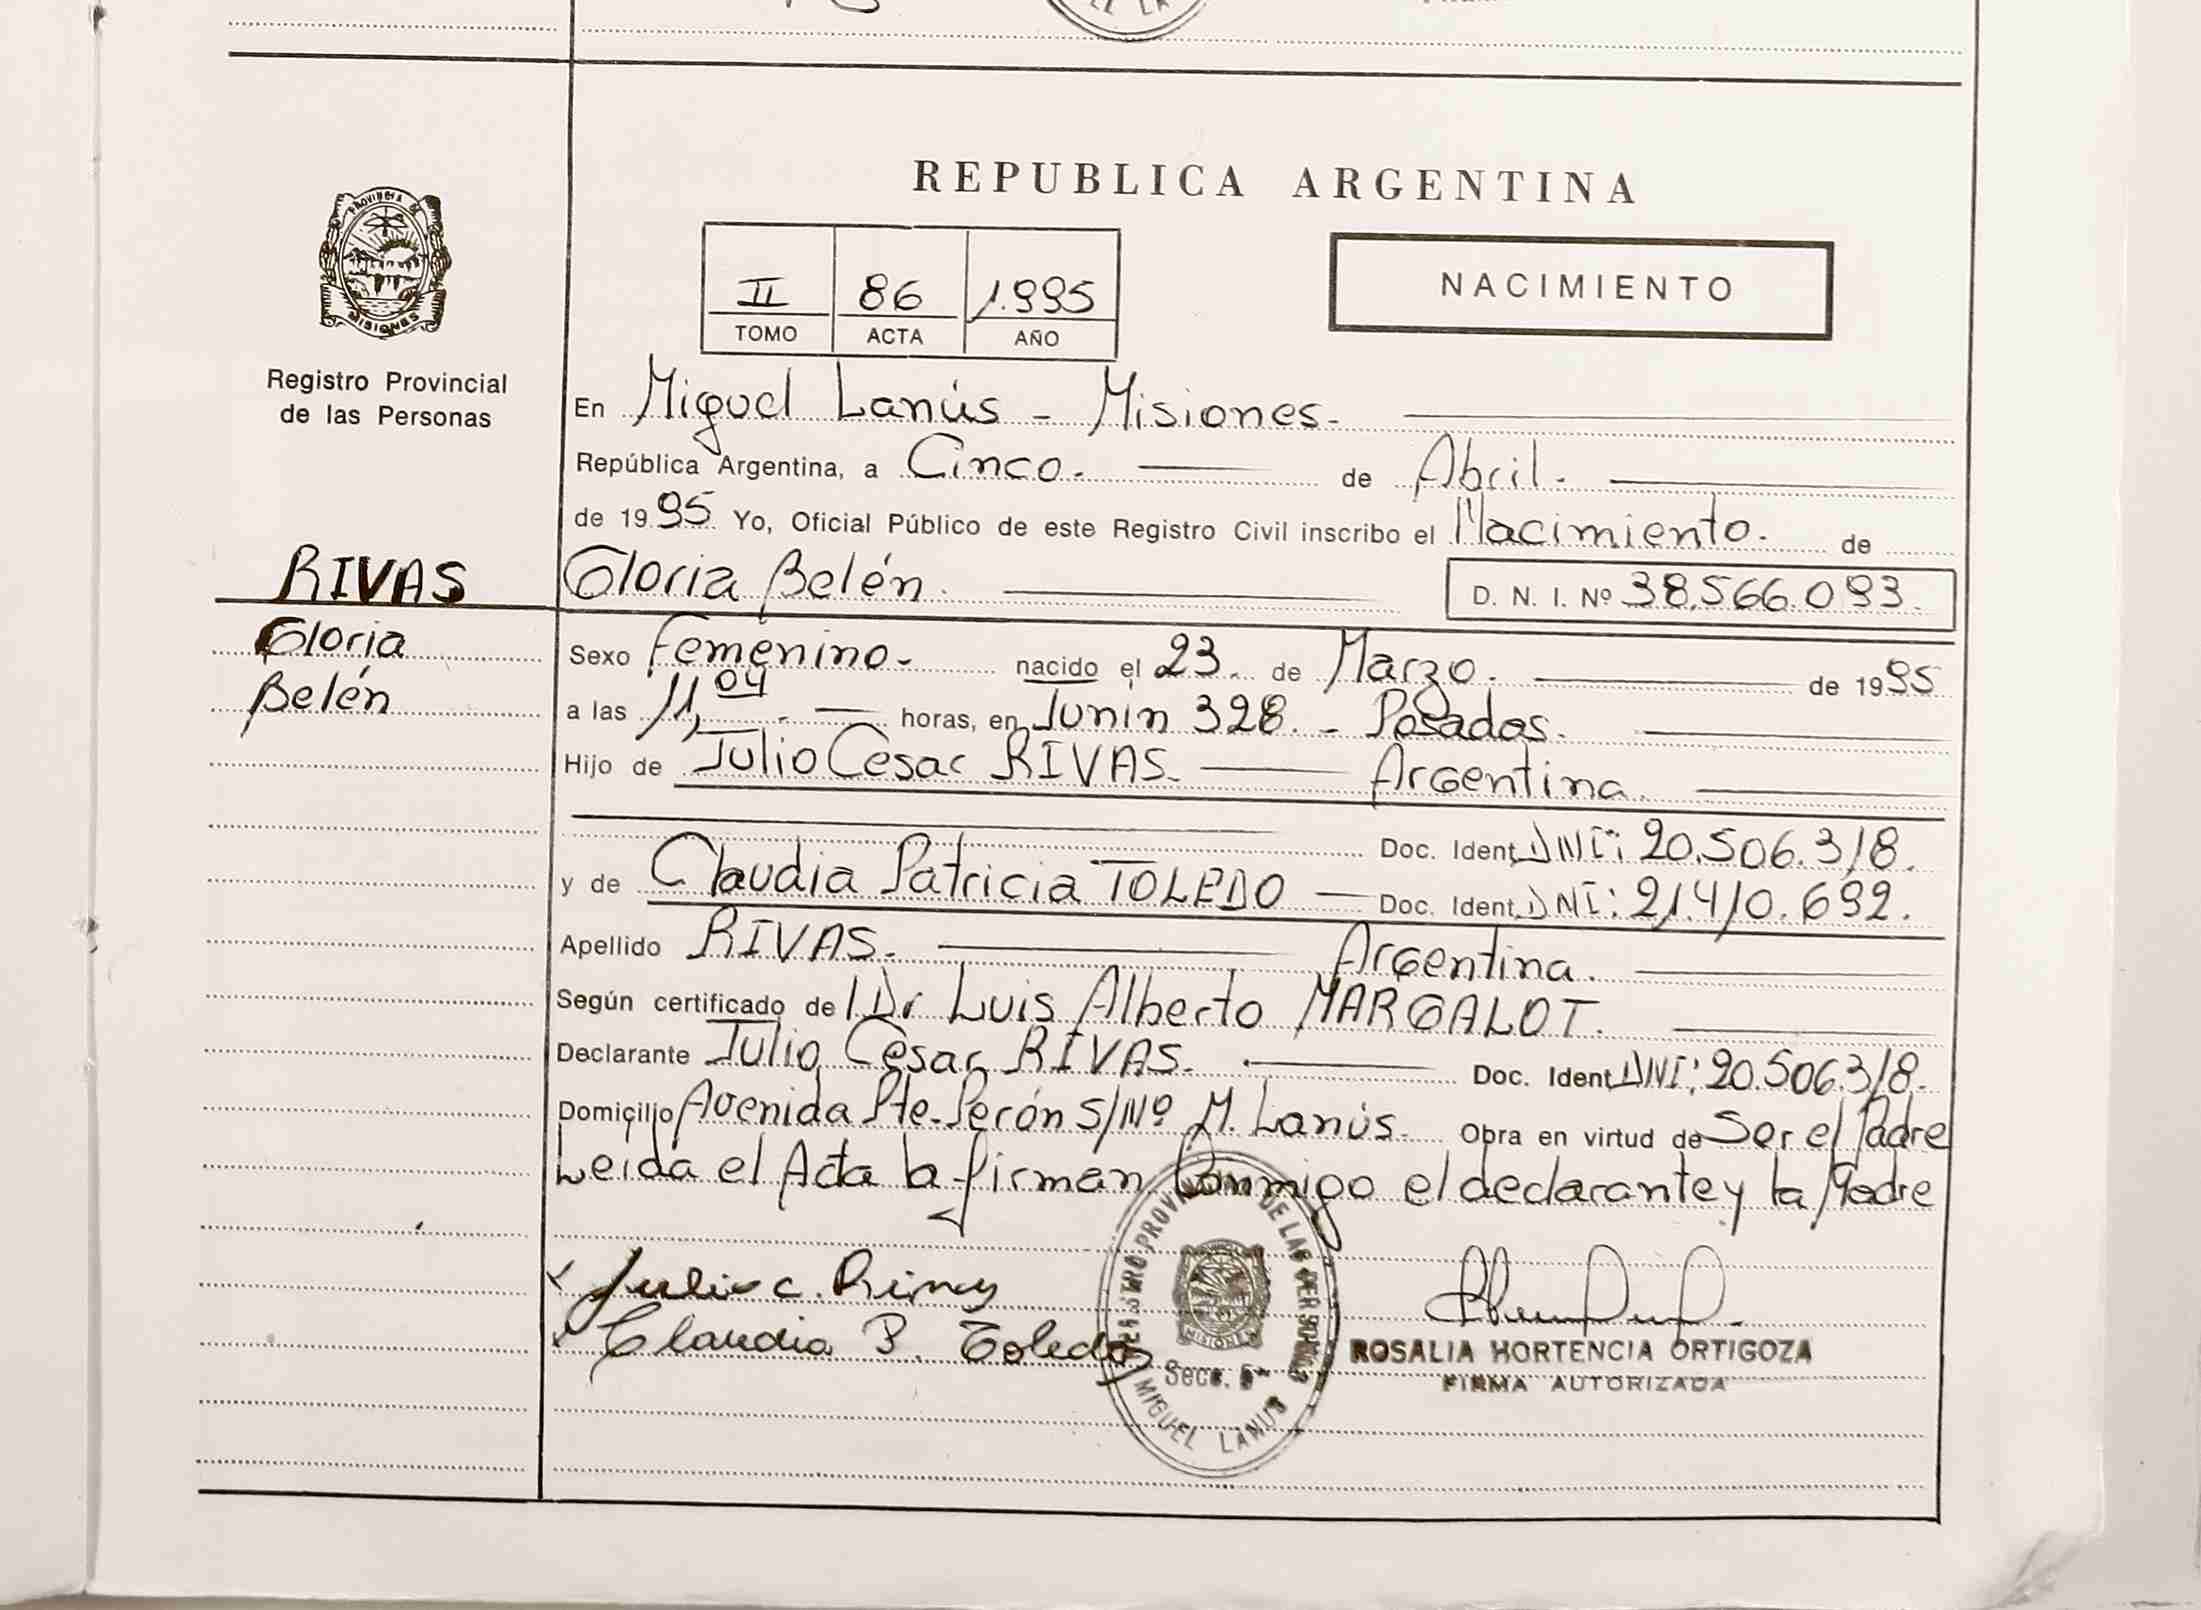 REPUBLICA ARGENTINA
PROVINCIA DE
MISIONES
Registro Provincial
de las Personas
II 86 1.995
TOMO ACTA AÑO
NACIMIENTO
En Miguel Lanús - Misiones.
República Argentina, a Cinco. de Abril.
de 1995 Yo, Oficial Público de este Registro Civil inscribo el Nacimiento. de
RIVAS
Gloria
Belén
Gloria Belén. D. N. I. Nº 38.566.093.
Sexo Femenino. nacido el 23. de Marzo. de 1995
a las 11,04 horas, en Junín 328. - Posadas.
Hijo de Julio César RIVAS. Argentina.
Doc. Ident. DNI: 20.506.318.
y de Claudia Patricia TOLEDO Doc. Ident. DNI: 21.410.692.
Apellido RIVAS. Argentina.
Según certificado de Dr Luis Alberto MARGALOT.
Declarante Julio César RIVAS. Doc. Ident. DNI: 20.506.318.
Domicilio Avenida Pte. Perón S/Nº M. Lanús. Obra en virtud de Ser el Padre
Leída el Acta la firman Conmigo el declarante y la Madre
Julio C. Rivas
Claudia P. Toledo
REGISTRO PROVINCIAL DE LAS PERSONAS
MISIONES
Secc. 5ª
MIGUEL LANUS
ROSALIA HORTENCIA ORTIGOZA
FIRMA AUTORIZADA